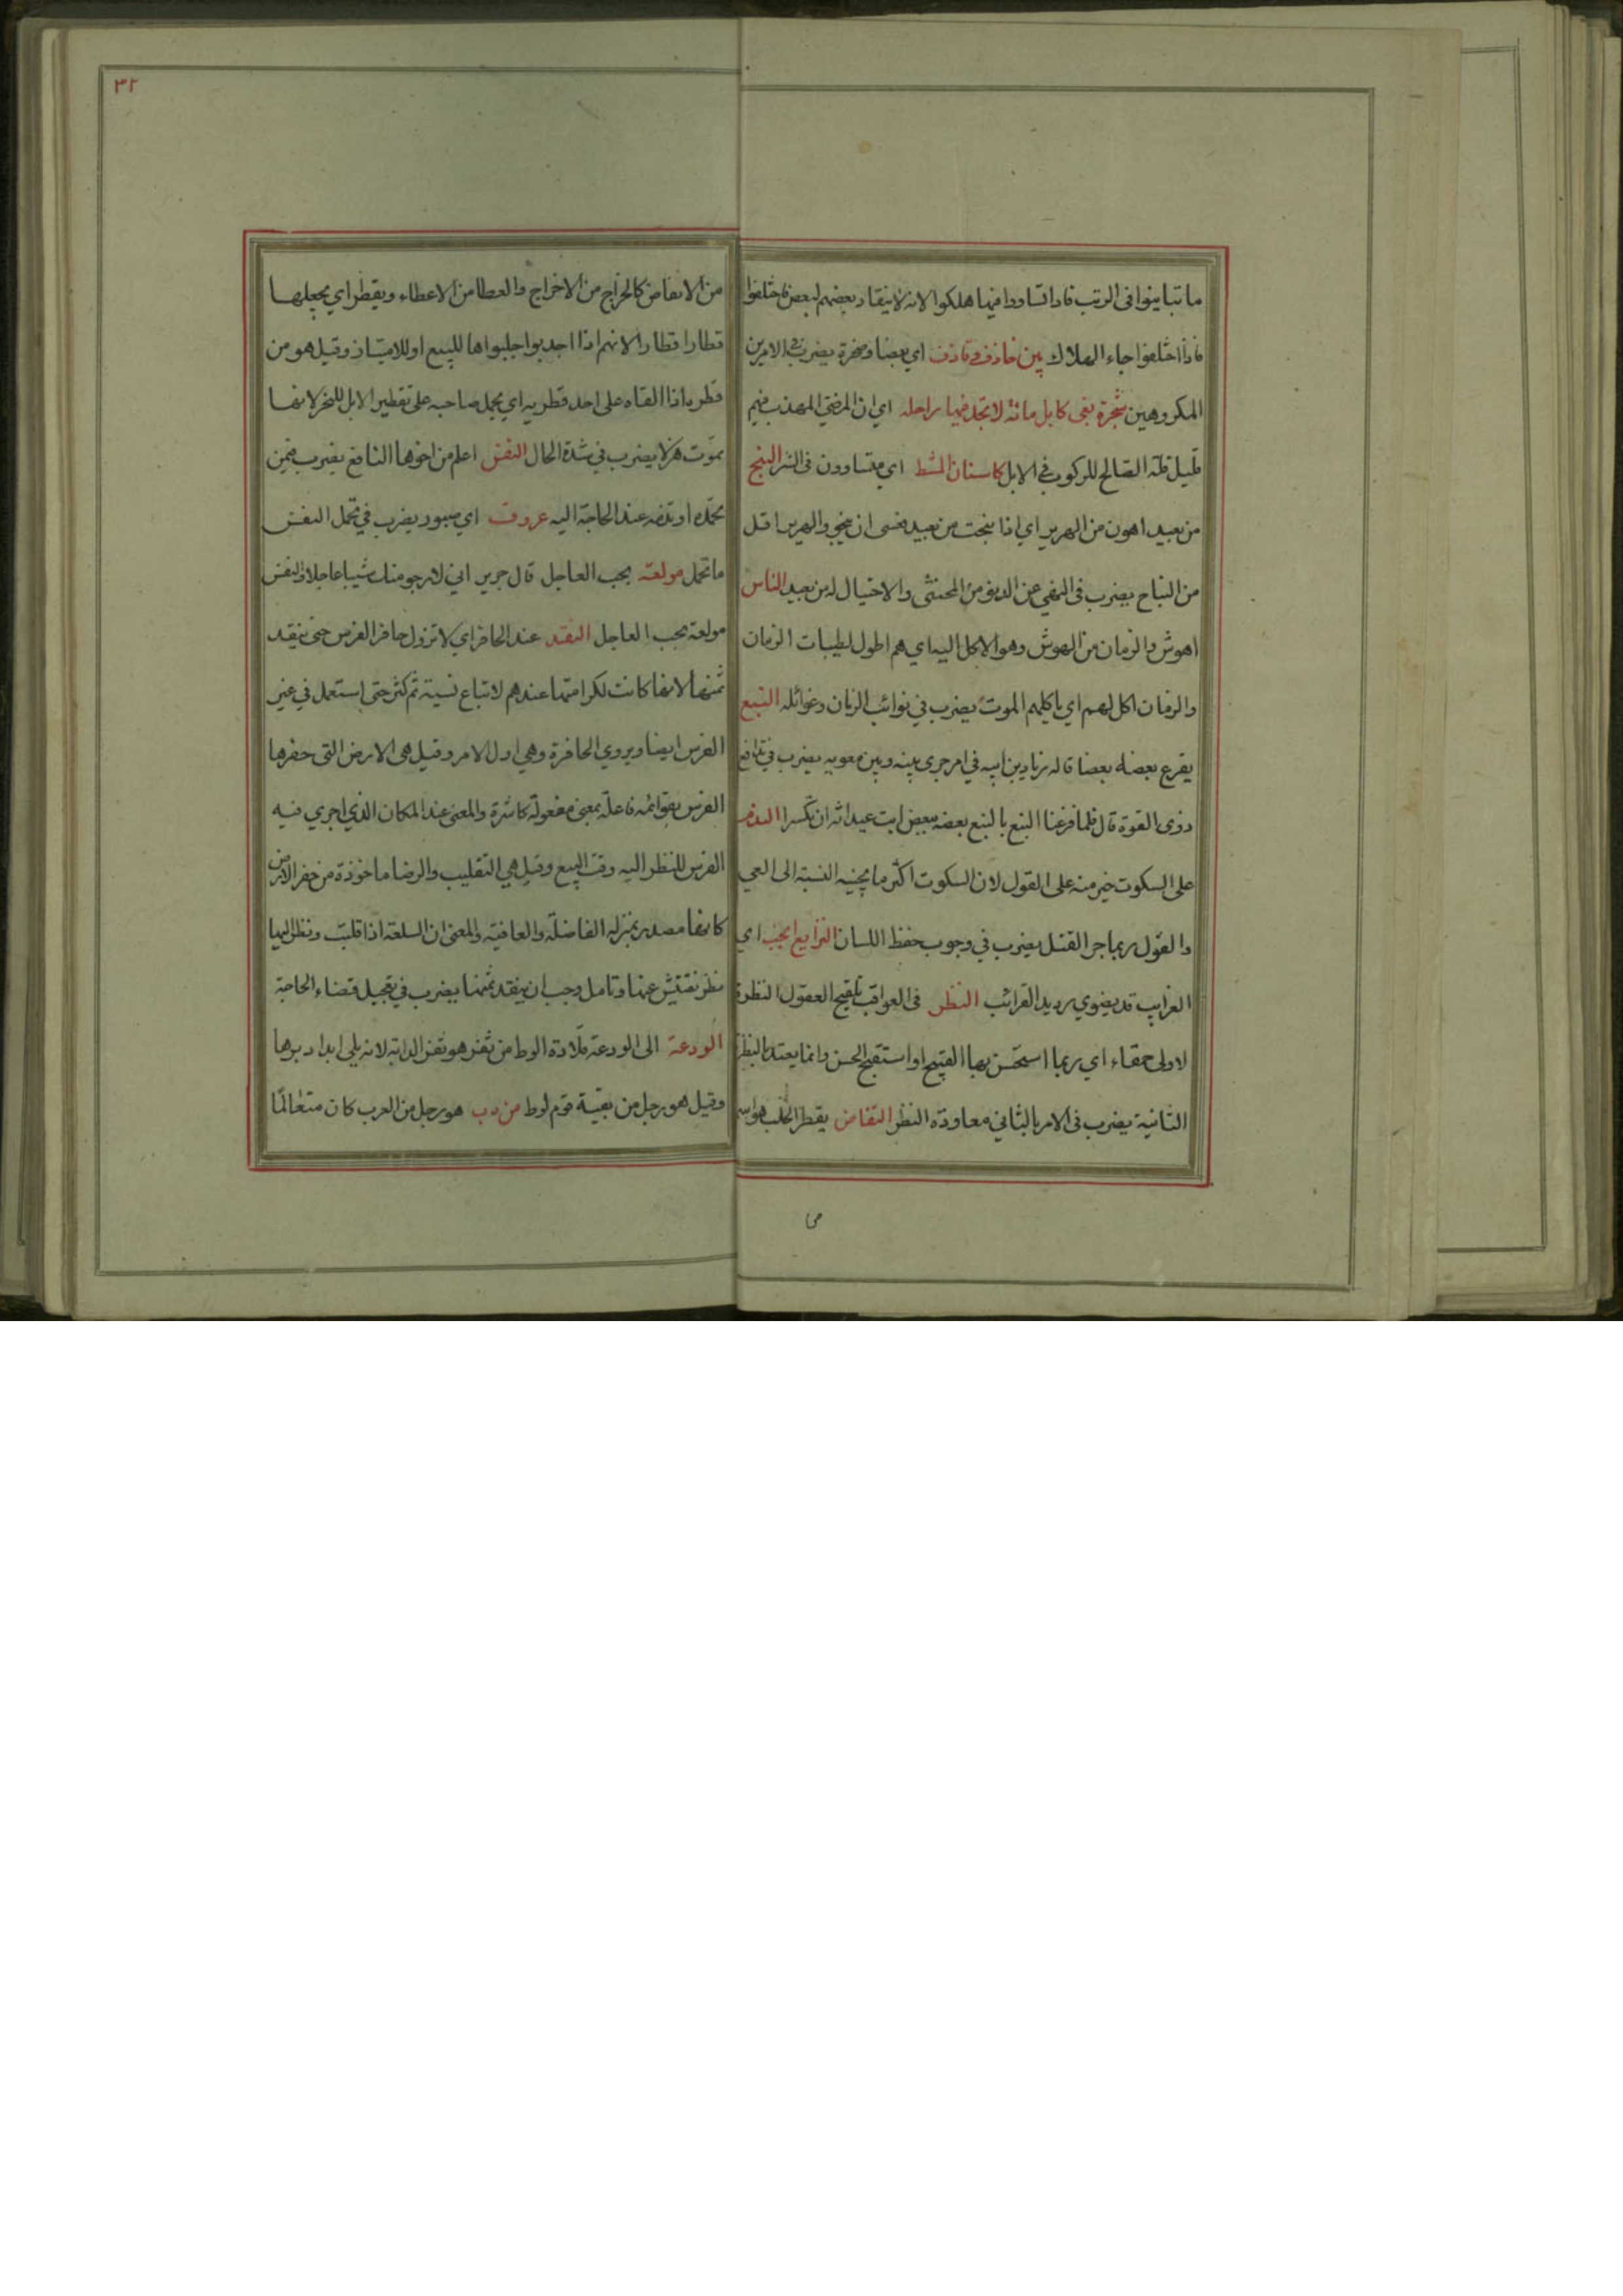 ما تباينوا فى الرتب فاذا تساووا فيها هلكوا لانه لا ينقاد بعضهم لبعض فاختلفوا
فاذا اختلفوا جاء الهلاك بين حاذف وقاذف اي بعصا وصخرة يضرب في الامرين
المكروهين شجرة بغى كابل مائة لا تجد فيها راحلة اي ان المرضي المهذب فيهم
قليل قلة الصالح للركوب في الابل كاسنان المشط اي متساوون فى الشر النبح
من بعيد اهون من الهرير اي اذا نبحت من بعيد فعسى ان ينجو والهرير اقل
من النباح يضرب فى النهي عن الدنو من المخشى والاحتيال له من بعيد الناس
اهوش والزمان من الهوش وهو الاكل اليه اي هم اطول لطيبات الزمان
والزمان اكل لهم اي ياكلهم الموت يضرب في نوائب الزمان وغوائله النبع
يقرع بعضه بعضا قاله زياد بن ابيه في امر جرى بينه وبين معويه يضرب في تدافع
ذوى القوة قال فلما قرعنا النبع بالنبع بعضه ببعض ابت عيدانه ان تكسرا الندم
على السكوت خير منه على القول لان السكوت اكثر ما يجنيه النسبة الى العي
والقول ربما جر القتل يضرب في وجوب حفظ اللسان النزايع انجب اي
الغرايب قد يضوي يريد القرائب النظر فى العواقب تلقيح العقول النظرة
الاولى حمقاء اي ربما استحسن بها القبيح او استقبح الحسن وانما يعتد بالنظرة
الثانية يضرب فى الامر بالثاني معاودة النظر النفاض يقطر الجلب هو اسم
من
٣٢
من الانفاض كالخراج من الاخراج والعطا من الاعطاء ويقطر اي يجعلها
قطارا قطارا لانهم اذا اجدبوا جلبوا اها للبيع او للامتياز وقيل هو من
قطره اذا القاه على احد قطريه اي يحمل صاحبه على تقطير الابل للنحر لانها
تموت هزلا يضرب في شدة الحال النفس اعلم من اخوها النافع يضرب فيمن
تحمده او تذمه عند الحاجة اليه عروف اي صبور يضرب في تحمل النفس
ما تحمل مولعة بحب العاجل قال جرير اني لارجو منك شيبا عاجلا والنفس
مولعة بحب العاجل النقد عند الحافر اي لا تزول حافر الفرس حتى ينقد
ثمنها لانها كانت لكرامتها عندهم لا تباع نسيتة ثم كثر حتى استعمل في غير
الفرس ايضا ويروي الحافرة وهي اول الامر وقيل هى الارض التى حفرها
الفرس بقوائمه فاعلة بمعنى مفعولة كاشرة والمعنى عند المكان الذي اجري فيه
الفرس للنظر اليه وقت البيع وقيل هي التقليب والرضا ماخوذة من حفر الارض
كانها مصدر بمنزلة الفاضلة والعافية والمعنى ان السلعة اذا قلبت ونظر اليها
نظر تفتيش عنها وتامل وجب ان ينقد ثمنها يضرب في تعجيل قضاء الحاجة
الودعة الى الودعة قلادة الوط من ثفر هو ثفر الدابة لانه يلي ابدا دبرها
وقيل هو رجل من بقية قوم لوط من دب هو رجل من العرب كان متعالما